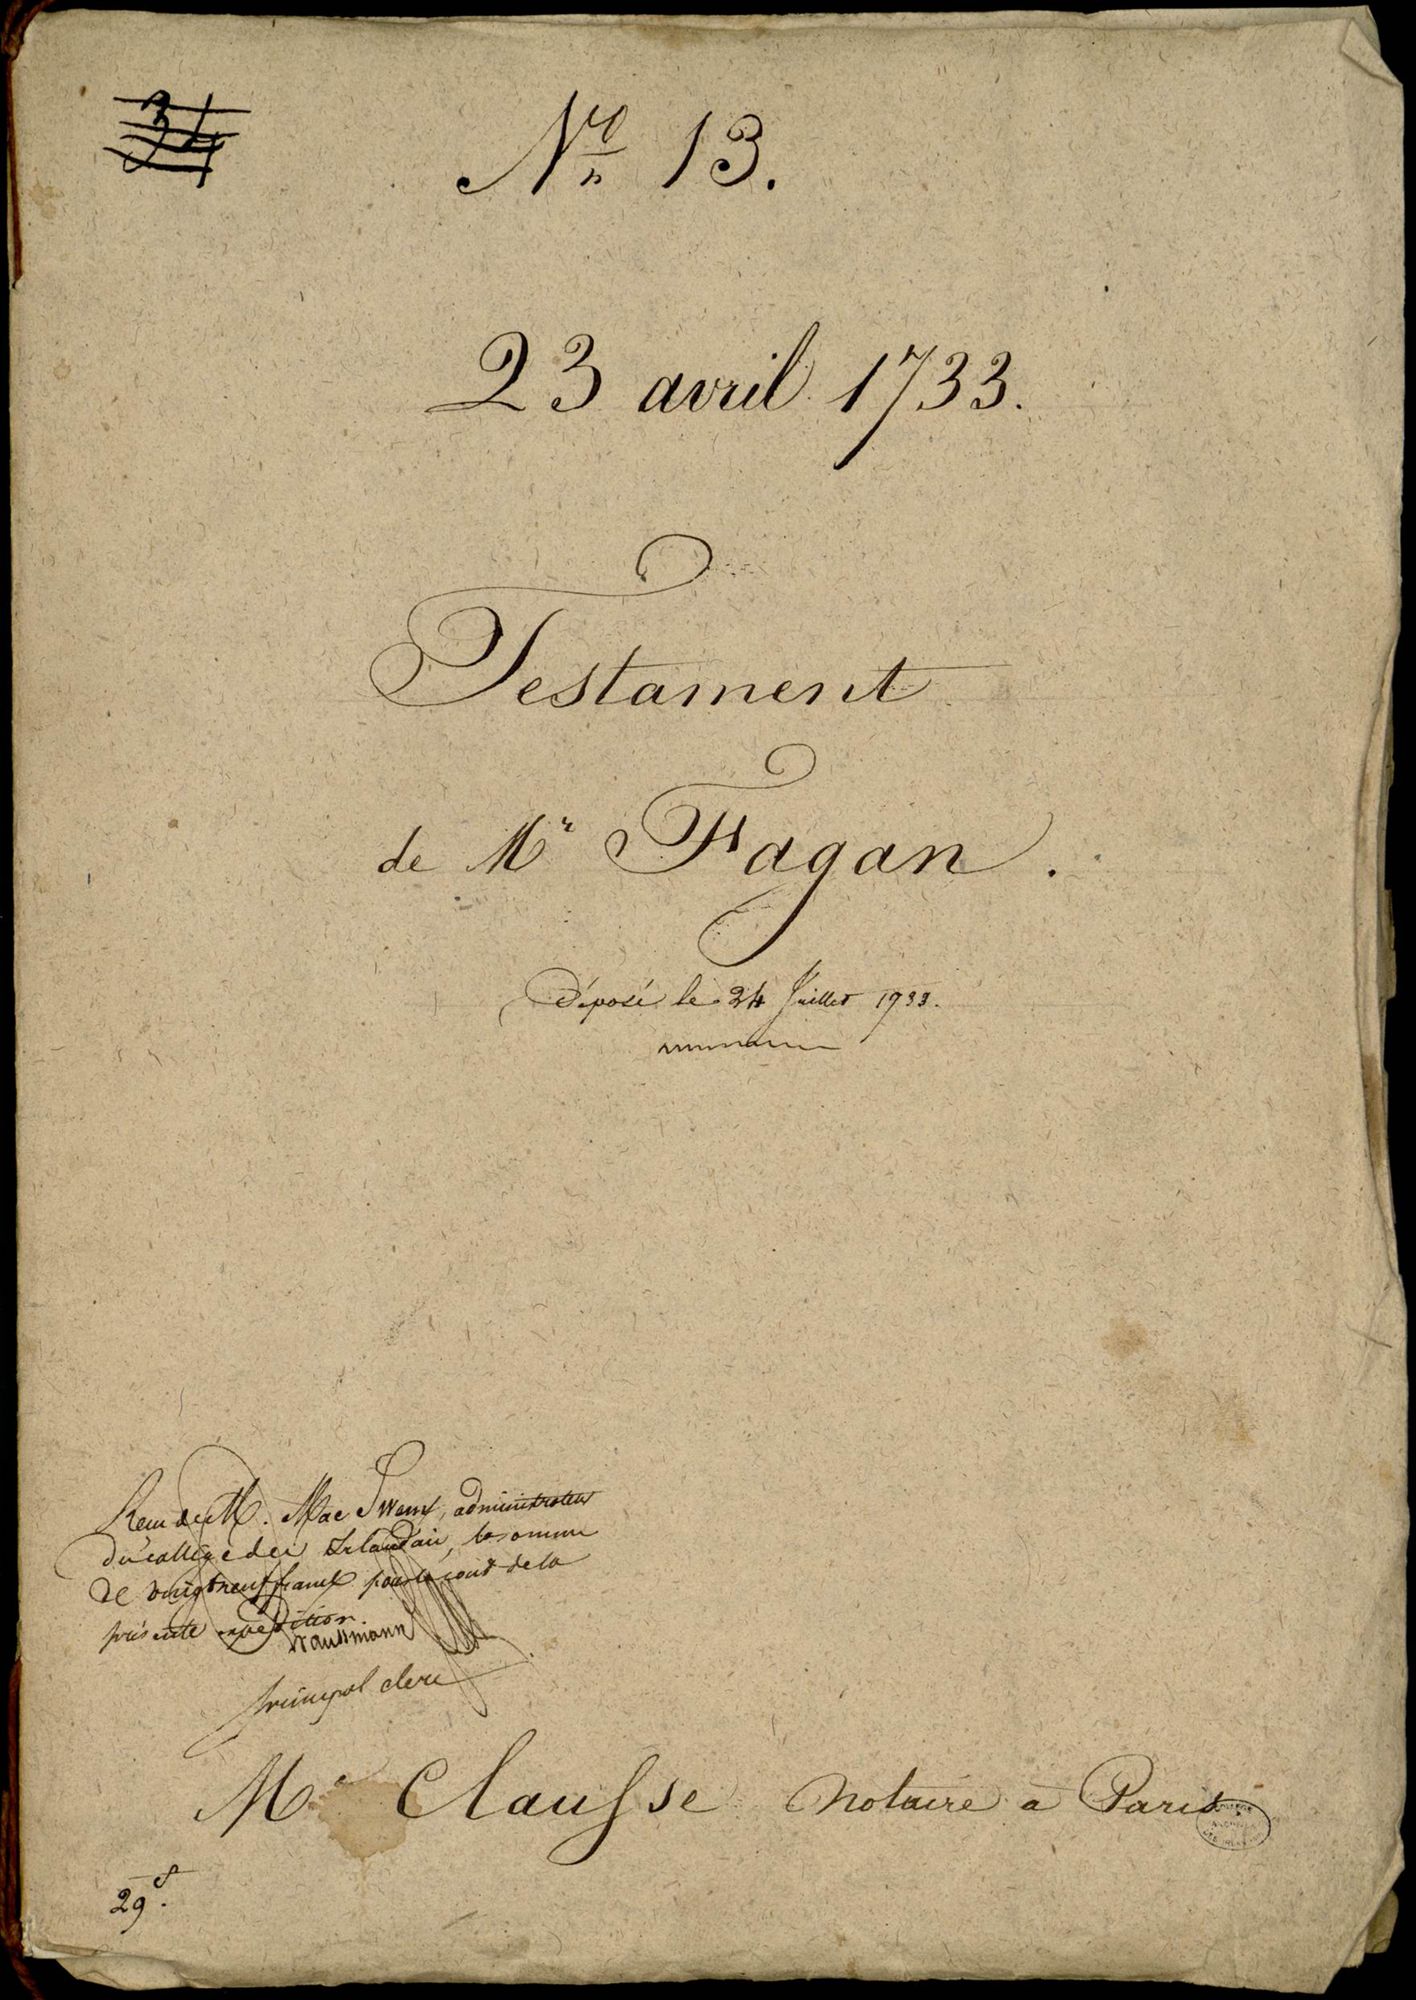 34
No 13.
23 avril 1733.
Testament
de Mr Fagan.
Déposé le 24 Juillet 1733.
Recu de M. Mac Sweny, administrateur
du collège des Irlandais, la somme
de vingt neuf francs pour le cout de la
présente expédition.
principal clerc
Me Clausse notaire à Paris.
29f.